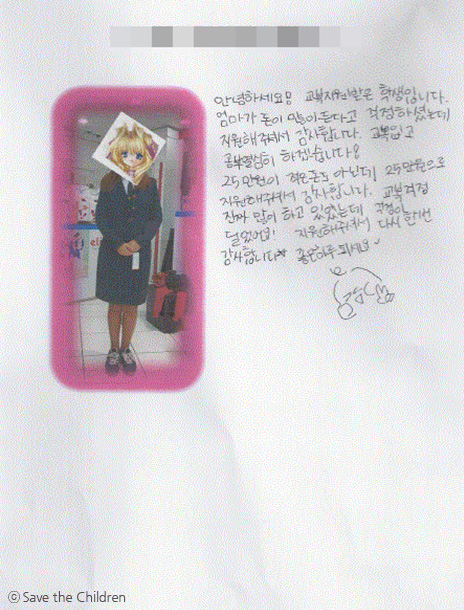 안녕하세요!! 교복지원받은 학생입니다.
엄마가 돈이 많이 든다고 걱정하셨는데
지원해주셔서 감사합니다. 교복입고
공부열심히 하겠습니다!
25만원이 적은돈도 아닌데 25만원으로
지원해주셔서 감사합니다. 교복걱정
진짜 많이 하고 있었는데 걱정이
덜었어요! 지원해주셔서 다시 한번
감사합니다* 좋은하루 되세요~
ⓒ Save the Children